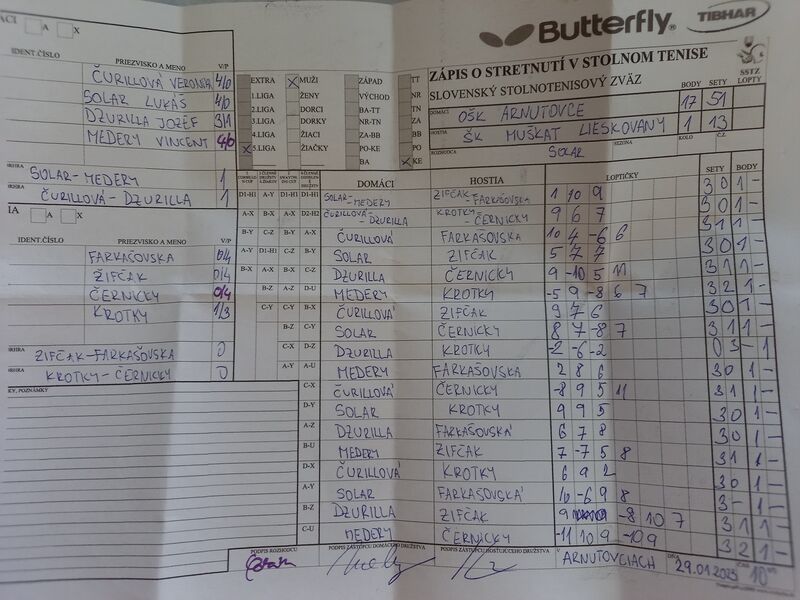 Butterfly TIBHAR
ZÁPIS O STRETNUTÍ V STOLNOM TENISE
SLOVENSKÝ STOLNOTENISOVÝ ZVÄZ
BODY SETY SSTZ LOPTY
DOMÁCI OŠK ARNUTOVCE 17 51
HOSTIA ŠK MUŠKÁT LIESKOVANY 1 13
ROZHODCA SOLAR SEZONA KOLO Č.Z.
A X
IDENT.ČÍSLO PRIEZVISKO A MENO V/P
ČURILLOVÁ VERONIKA 4/0
SOLAR LUKÁŠ 4/0
DZURILLA JOZEF 3/1
MEDERY VINCENT 4/0
SOLAR-MEDERY 1
ČURILLOVÁ-DZURILLA 1
A X
IDENT.ČÍSLO PRIEZVISKO A MENO V/P
FARKAŠOVSKA 0/4
ŽIFČAK 0/4
ČERNICKY 0/4
KROTKY 1/3
ŽIFČAK-FARKAŠOVSKA 0
KROTKY-ČERNICKY 0
POZNÁMKY
EXTRA X MUŽI ZÁPAD TT
1.LIGA ŽENY VÝCHOD NR
2.LIGA DORCI BA-TT TN
3.LIGA DORKY NR-TN ZA
4.LIGA ŽIACI ZA-BB BB
X 5.LIGA ŽIAČKY PO-KE PO
BA X KE
DOMÁCI HOSTIA LOPTIČKY SETY BODY
D1-H1 D1-H1 D1-H1 SOLAR-MEDERY ZIFČAK-FARKAŠOVSKA 1 10 9 3 0 1 -
A-X A-X D2-H2 ČURILLOVÁ-DZURILLA KROTKY-ČERNICKY 9 6 7 3 0 1 -
B-Y C-Z B-Y A-X ČURILLOVÁ FARKAŠOVSKA 10 4 -6 6 3 1 1 -
A-Y D1-H1 C-Z B-Y SOLAR ZIFČAK 5 7 7 3 0 1 -
B-X A-X B-X C-Z DZURILLA ČERNICKY 9 -10 5 11 3 1 1 -
B-Z A-Z D-U MEDERY KROTKY -5 9 -8 6 7 3 2 1 -
C-Y C-Y B-X ČURILLOVÁ ZIFČAK 9 7 6 3 0 1 -
B-Z C-Y SOLAR ČERNICKY 8 7 -8 7 3 1 1 -
C-X D-Z DZURILLA KROTKY -2 -6 -2 0 3 - 1
A-Y A-U MEDERY FARKAŠOVSKA 2 8 6 3 0 1 -
C-X ČURILLOVÁ ČERNICKY -8 9 5 11 3 1 1 -
D-Y SOLAR KROTKY 9 9 5 3 0 1 -
A-Z DZURILLA FARKAŠOVSKÁ 6 7 8 3 0 1 -
B-U MEDERY ZIFČAK 7 -7 5 8 3 1 1 -
D-X ČURILLOVÁ KROTKY 6 9 2 3 0 1 -
A-Y SOLAR FARKAŠOVSKÁ 10 -6 9 8 3 - 1 -
B-Z DZURILLA ZIFČAK 9 -8 10 7 3 1 1 -
C-U MEDERY ČERNICKY -11 10 9 -10 9 3 2 1 -
PODPIS ROZHODCU PODPIS ZÁSTUPCU DOMÁCEHO DRUŽSTVA PODPIS ZÁSTUPCU HOSŤUJÚCEHO DRUŽSTVA V ARNUTOVCIACH DŇA 29.01.2023 ČAS 10